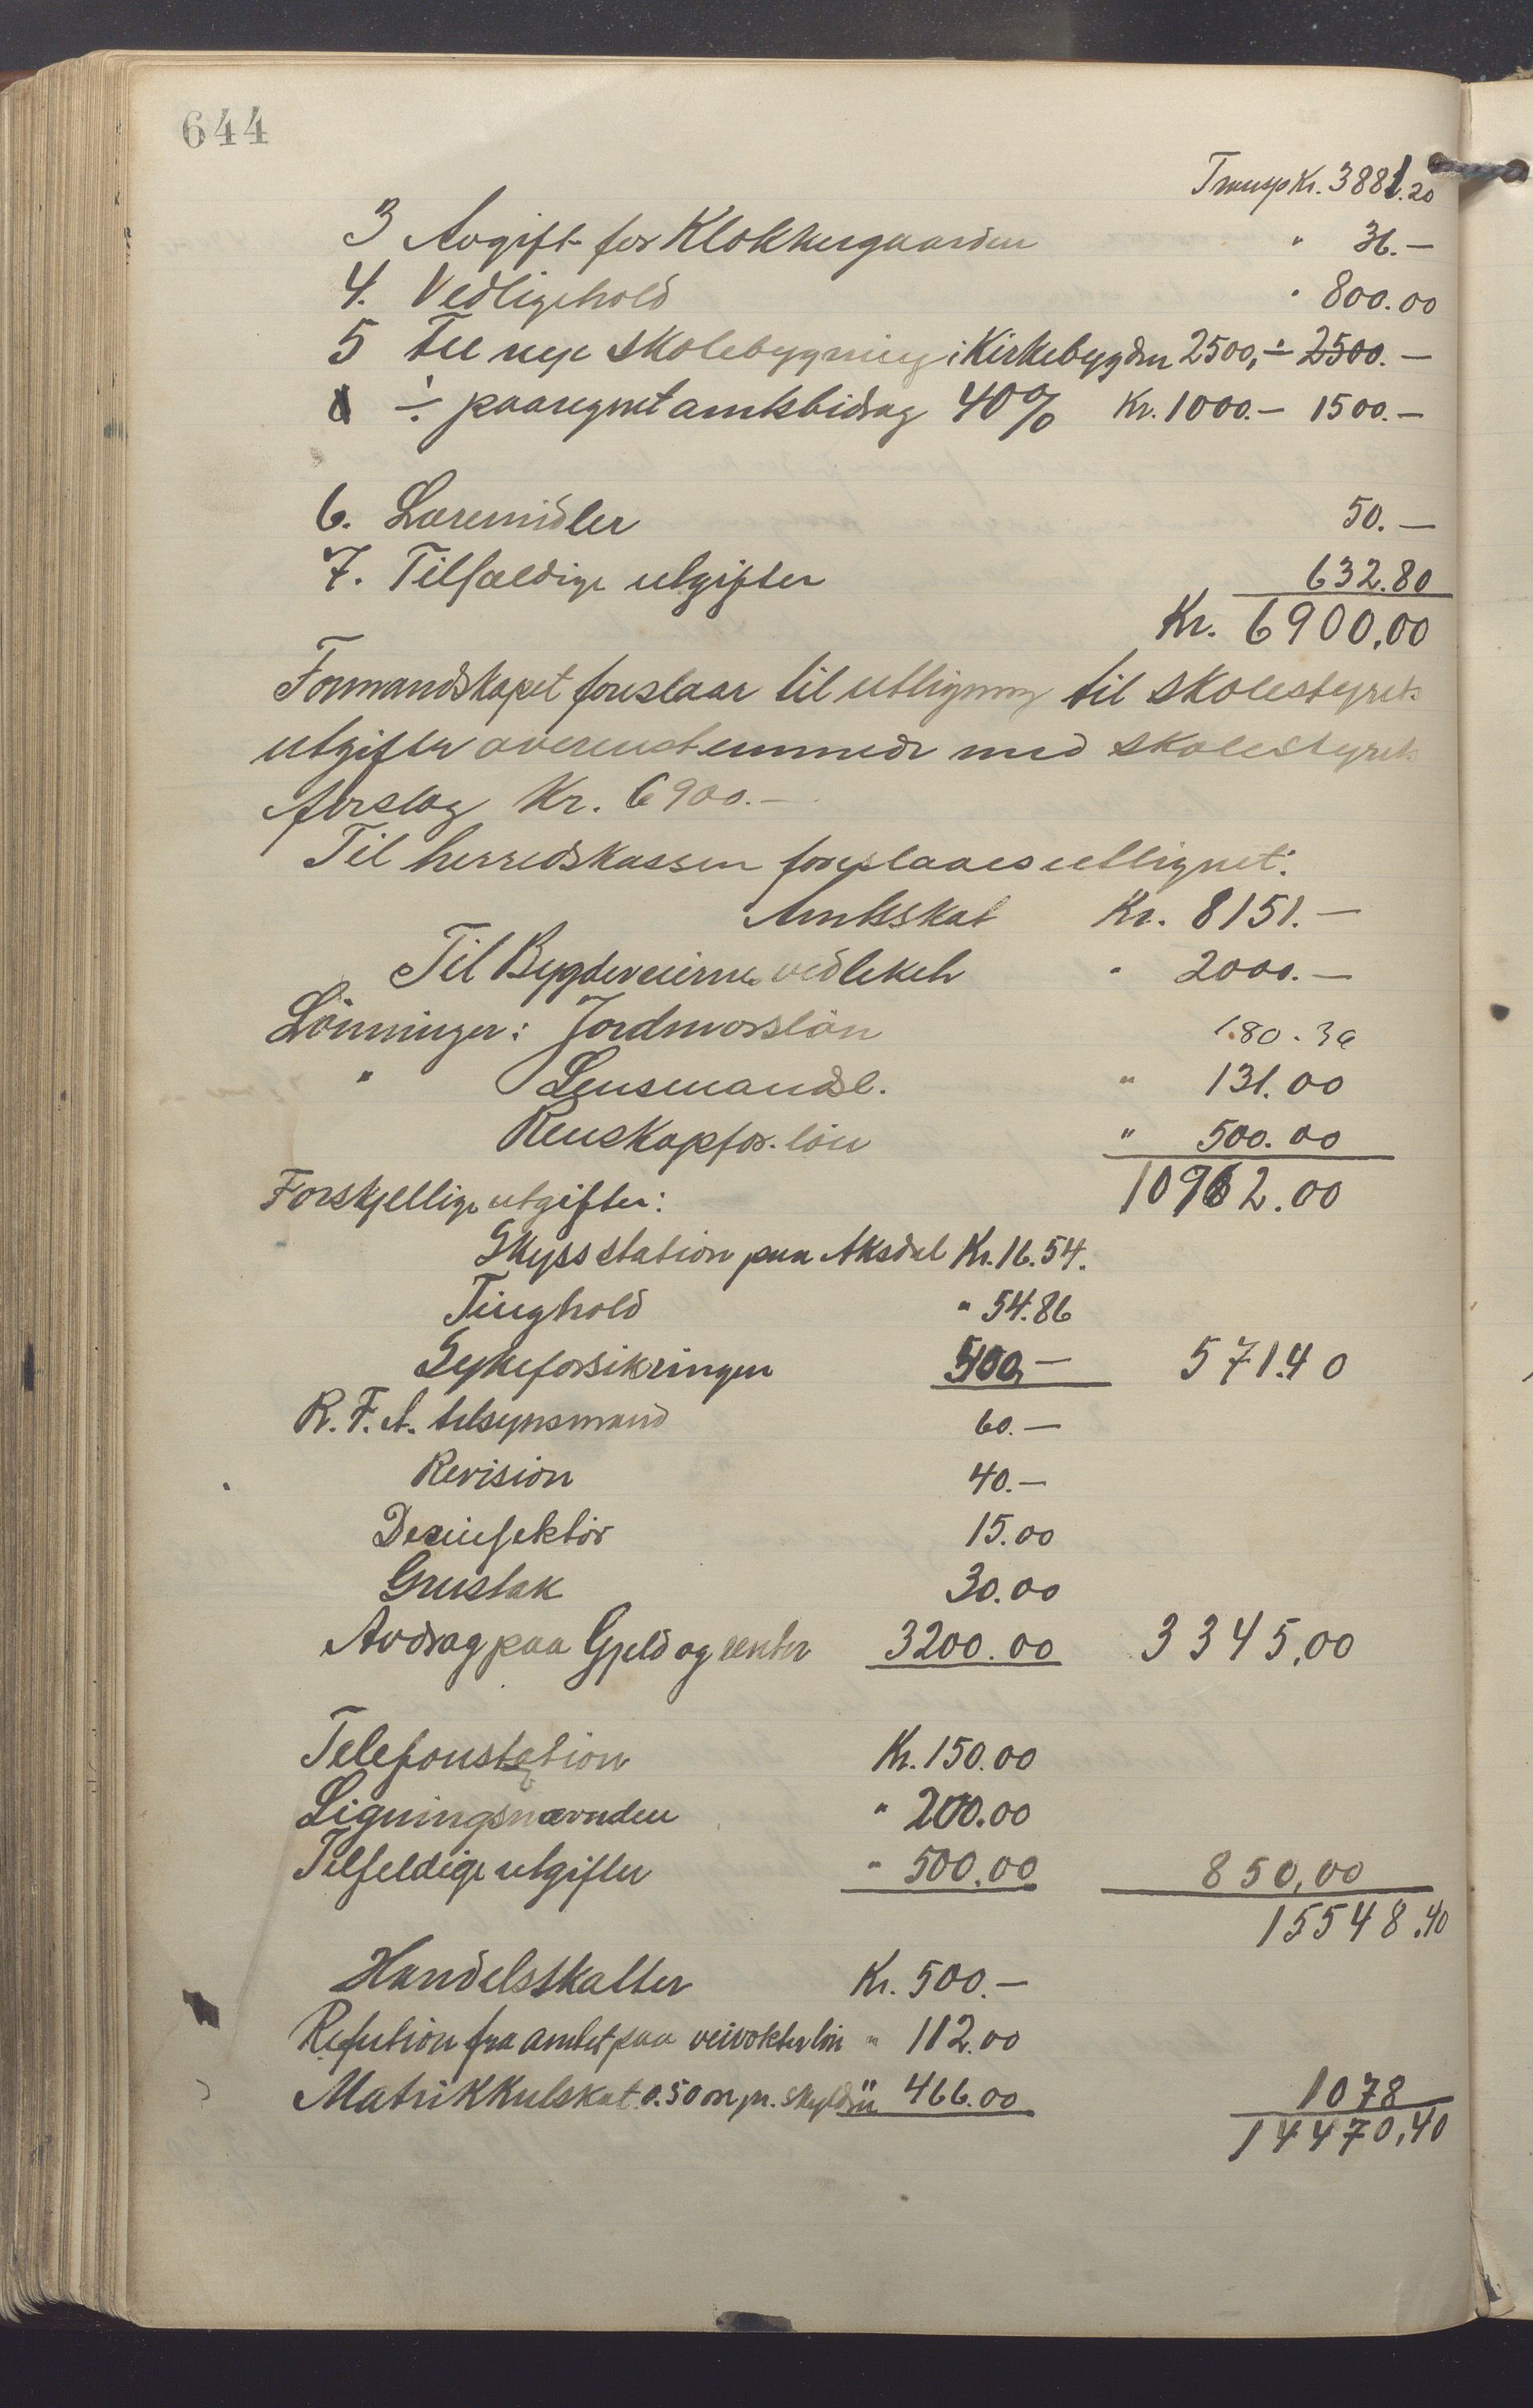 644
Transp Kr. 3881.20
3 Avgift for Klokkergaarden " 36.—
4. Vedligehold " 800.00
5 Til nye skolebygning i Kirkebygden 2500,÷ 2500.—
÷ paaregnet amtsbidrag 40% Kr. 1000.— 1500.—
6. Læremidler 50.—
7. Tilfældige utgifter 632.80
Kr. 6900,00
Formandskapet foreslaar til utligning til skolestyrets
utgifter overenstemmede med skolestyrets
forslag Kr. 6900.—
Til herredskassen foreslaaes utlignet:
Amtsskat Kr. 8151.—
Til Bygdeveiernes vedlikeh " 2000.—
Lönninger: Jordmorslön 180.
" Lensmandsl. " 131.00
Renskapsfør. lön " 500.00
Forskjellige utgifter: 10962.00
Skysstation paa Aksdal Kr. 16.54.
Tinghold " 54.86
Sykeforsikringen 500,— 571.40
R. F. A. tilsynsmand 60.—
Revision 40.—
Desinfektör 15.00
Grustak 30.00
Avdrag paa Gjeld og renter 3200.00 3345,00
Telefonstation Kr. 150.00
Ligningsnævnden " 200.00
Tilfeldige utgifter " 500.00 850,00
15548.40
Handelsskatter Kr. 500.—
Refution fra amtet paa veivokterlön " 112.00
Matrikkulskat 0.50 pr. skyld " 466.00 1078
14470,40